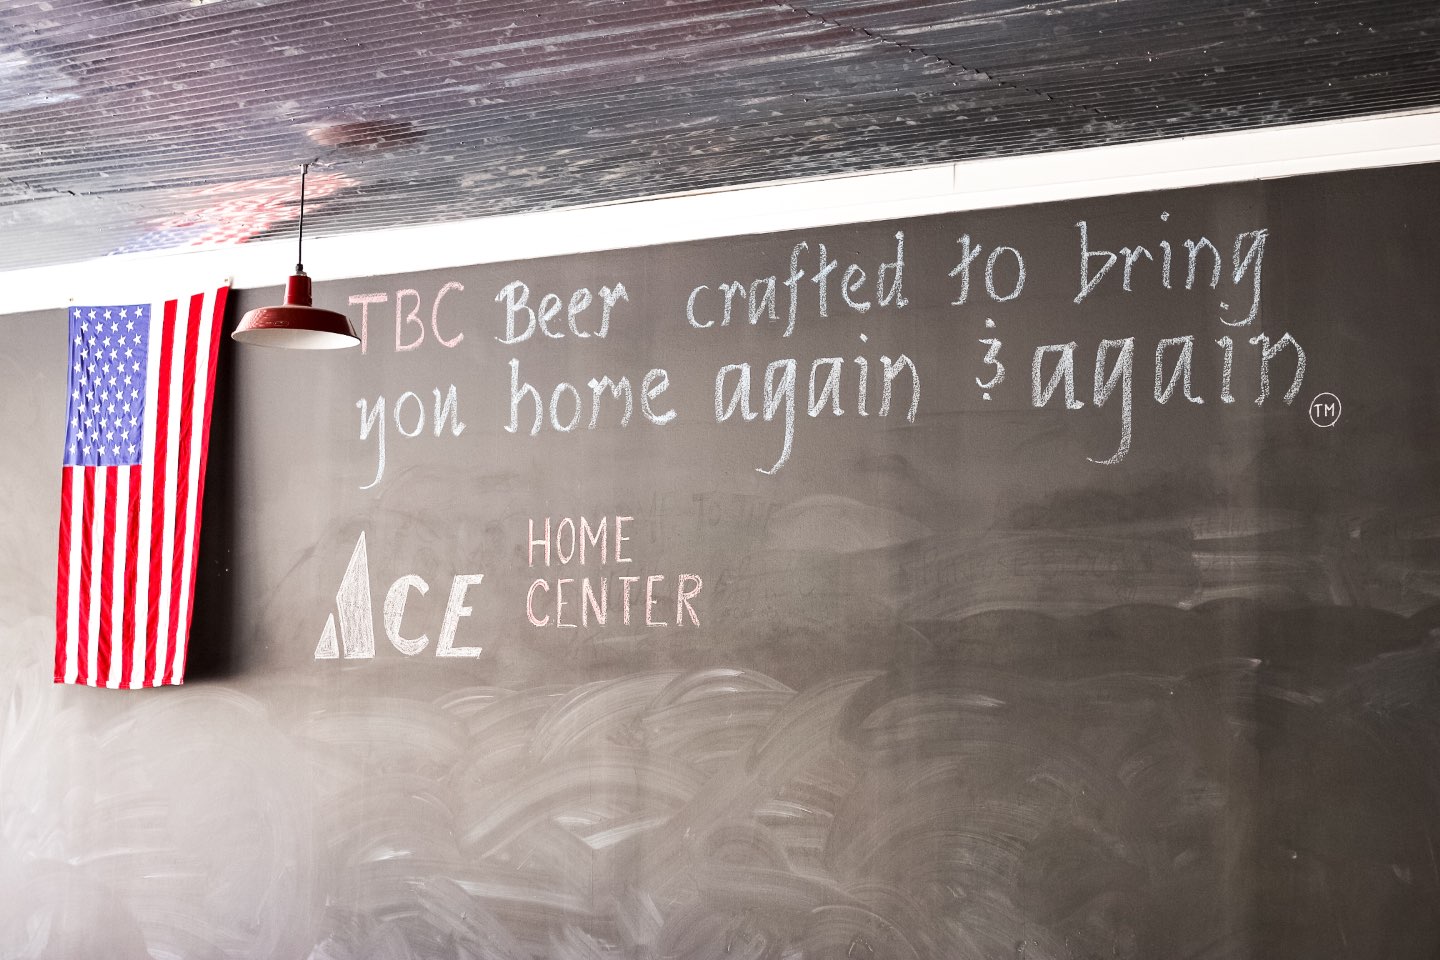 TBC Beer crafted to bring
you home again & again TM
ACE HOME
CENTER